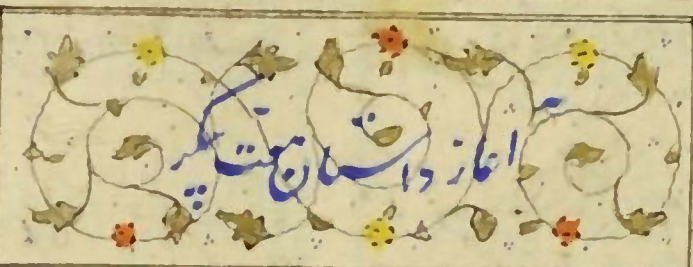 آغاز داستان هفت پیکر